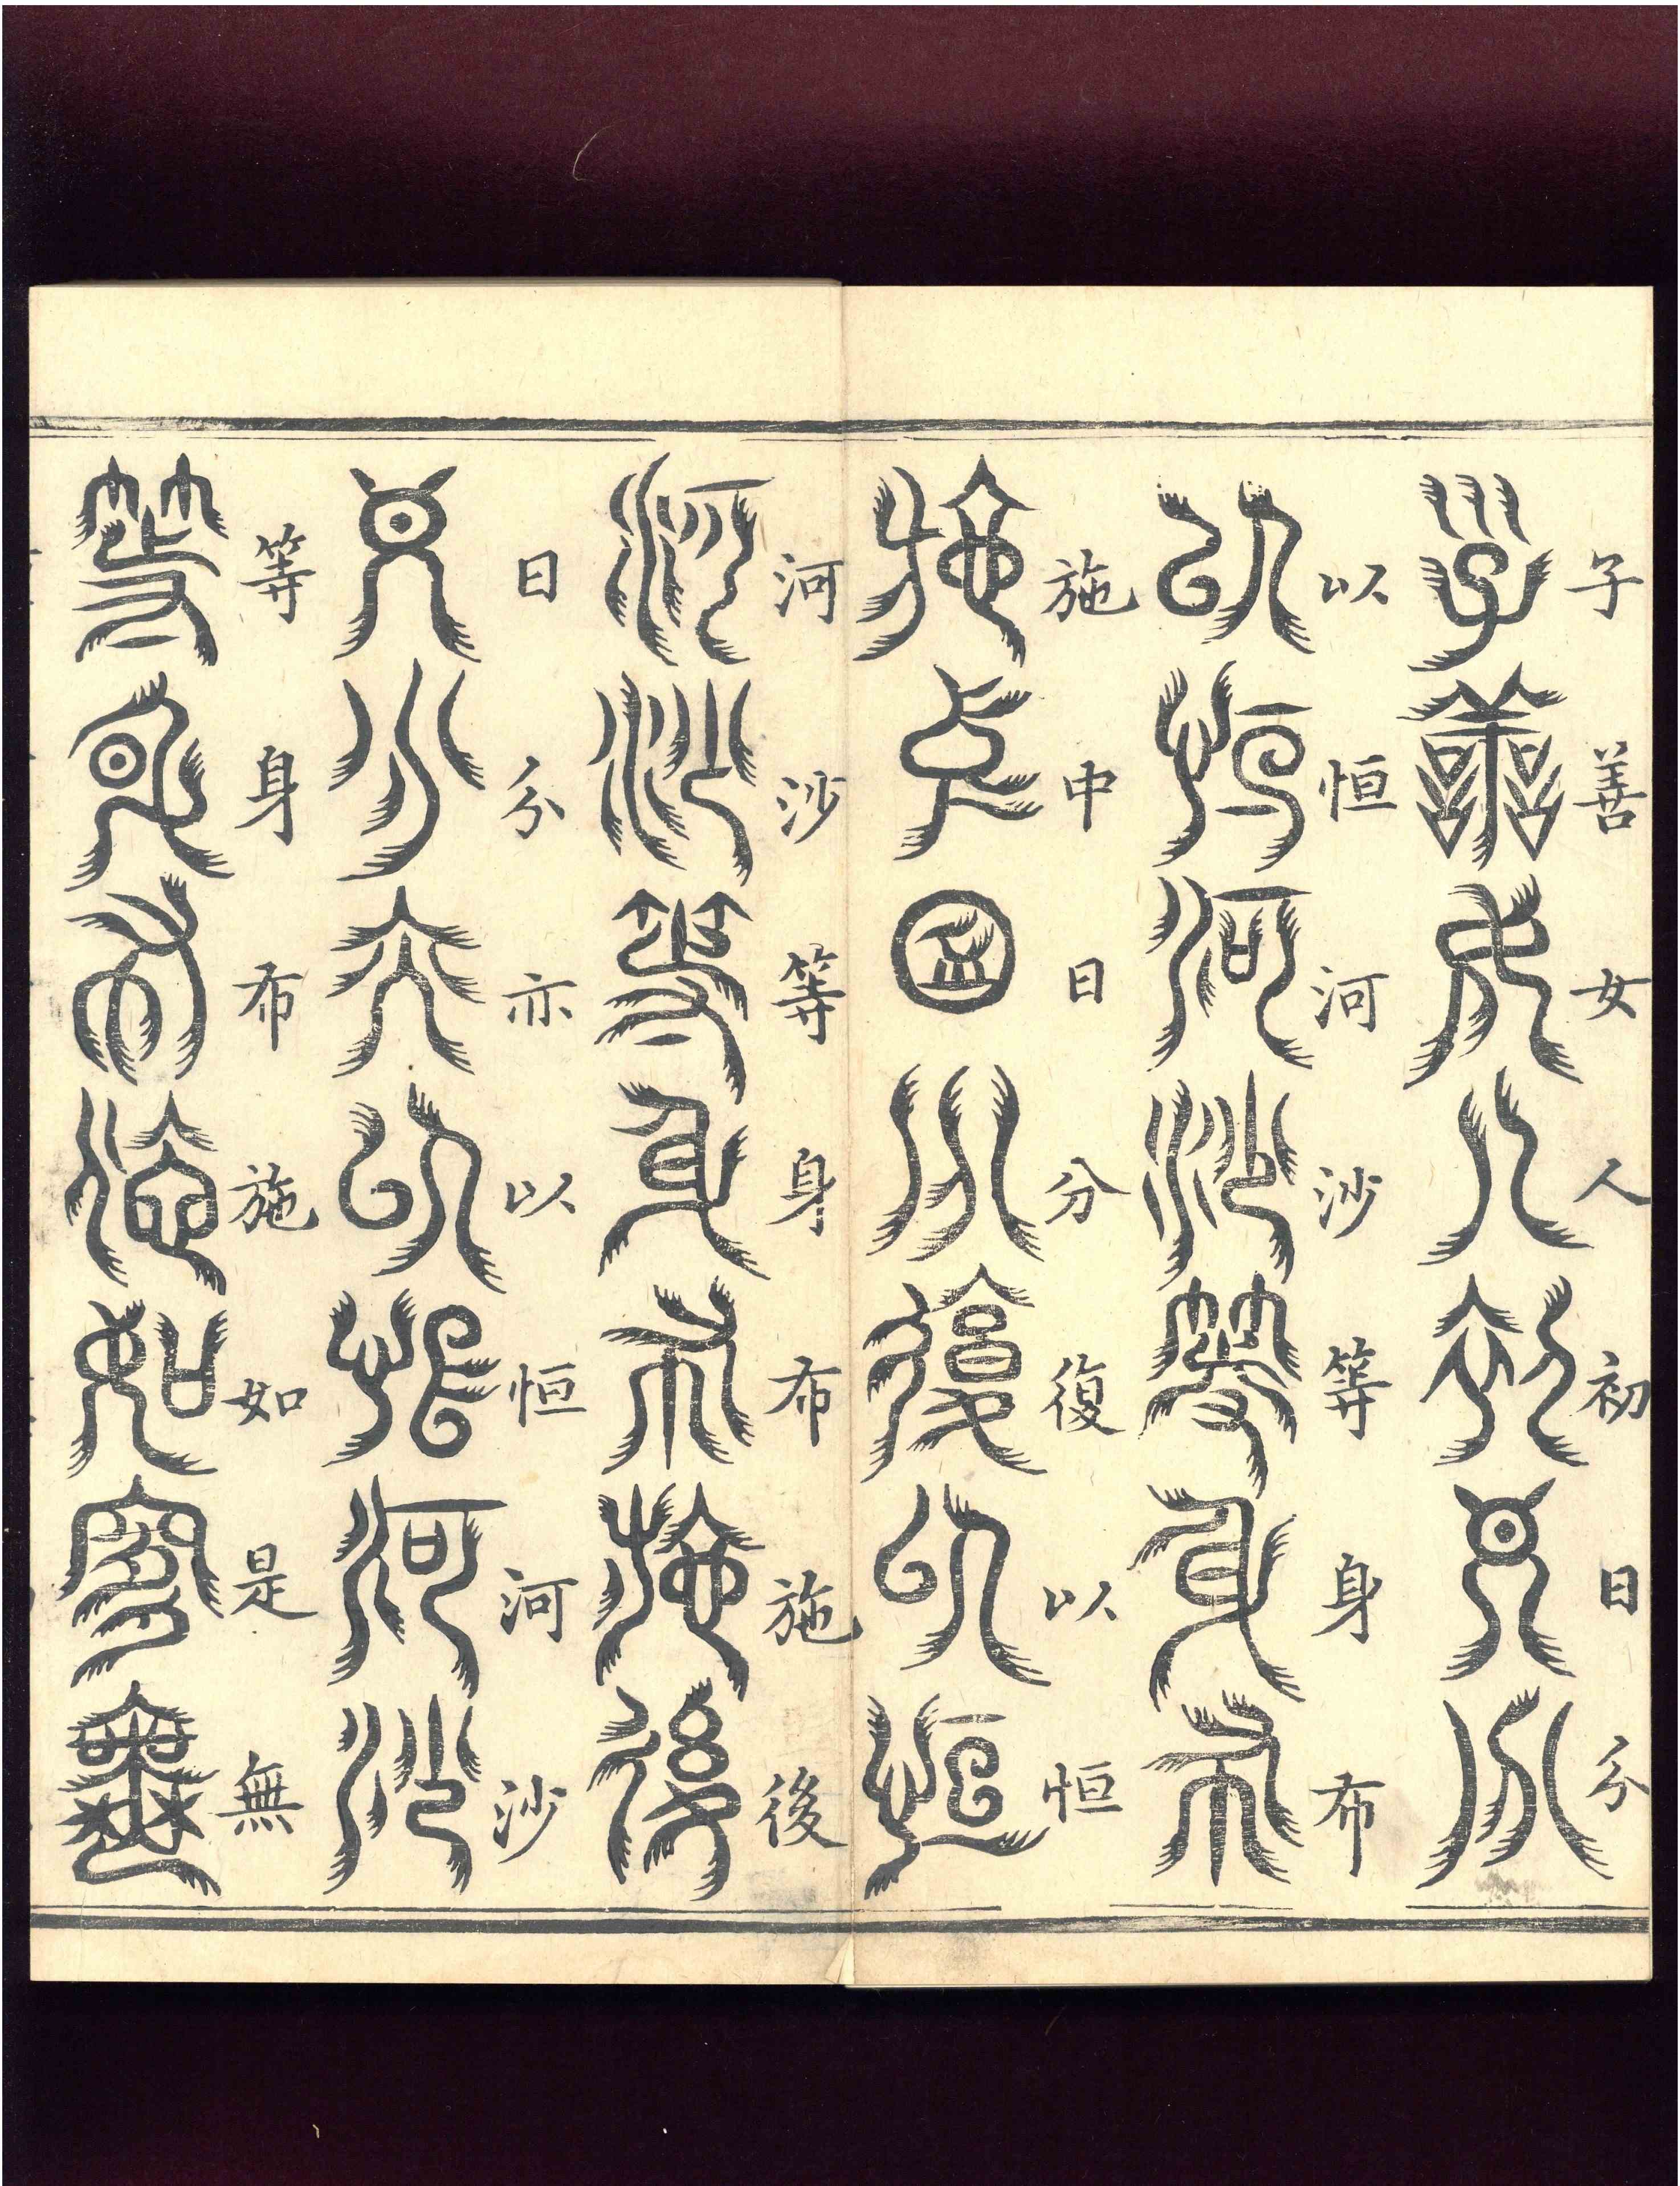 子善女人初日分
以恒河沙等身布
施中日分復以恒
河沙等身布施後
日分亦以恒河沙
等身布施如是無